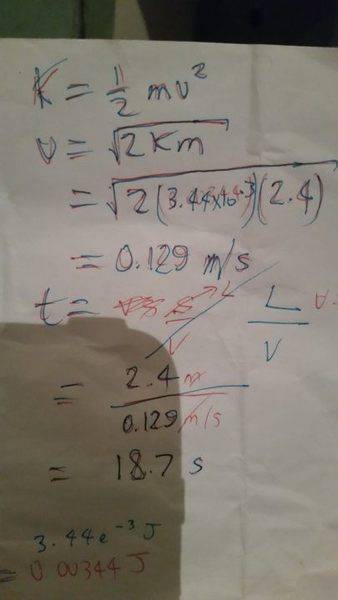 K = 1/2 mv²
v = √2Km
= √2(3.44x10⁻³)(2.4)
= 0.129 m/s
t = L/V
= 2.4 m / 0.129 m/s
= 18.7 s
3.44e⁻³ J
= 0.00344 J